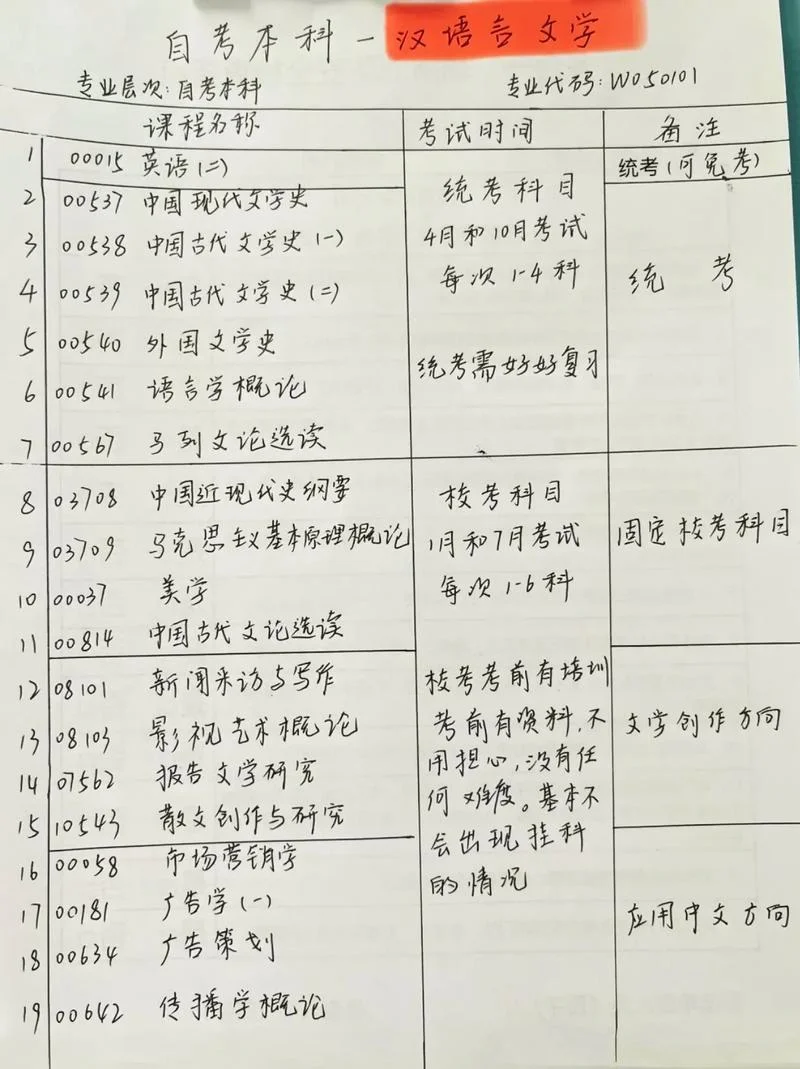 自考本科-汉语言文学
专业层次:自考本科 专业代码:W050101
课程名称 考试时间 备注
1 00015 英语(二) 统考(可免考)
2 00537 中国现代文学史 统考科目
3 00538 中国古代文学史(一) 4月和10月考试
4 00539 中国古代文学史(二) 每次1-4科 统 考
5 00540 外国文学史
6 00541 语言学概论 统考需好好复习
7 00567 马列文论选读
8 03708 中国近现代史纲要 校考科目
9 03709 马克思主义基本原理概论 1月和7月考试 固定校考科目
10 00037 美学 每次1-6科
11 00814 中国古代文论选读
12 08101 新闻采访与写作 校考考前有培训
13 08103 影视艺术概论 考前有资料,不 文学创作方向
14 07562 报告文学研究 用担心,没有任
15 10543 散文创作与研究 何难度。基本不
16 00058 市场营销学 会出现挂科
的情况
17 00181 广告学(一) 应用中文方向
18 00634 广告策划
19 00642 传播学概论